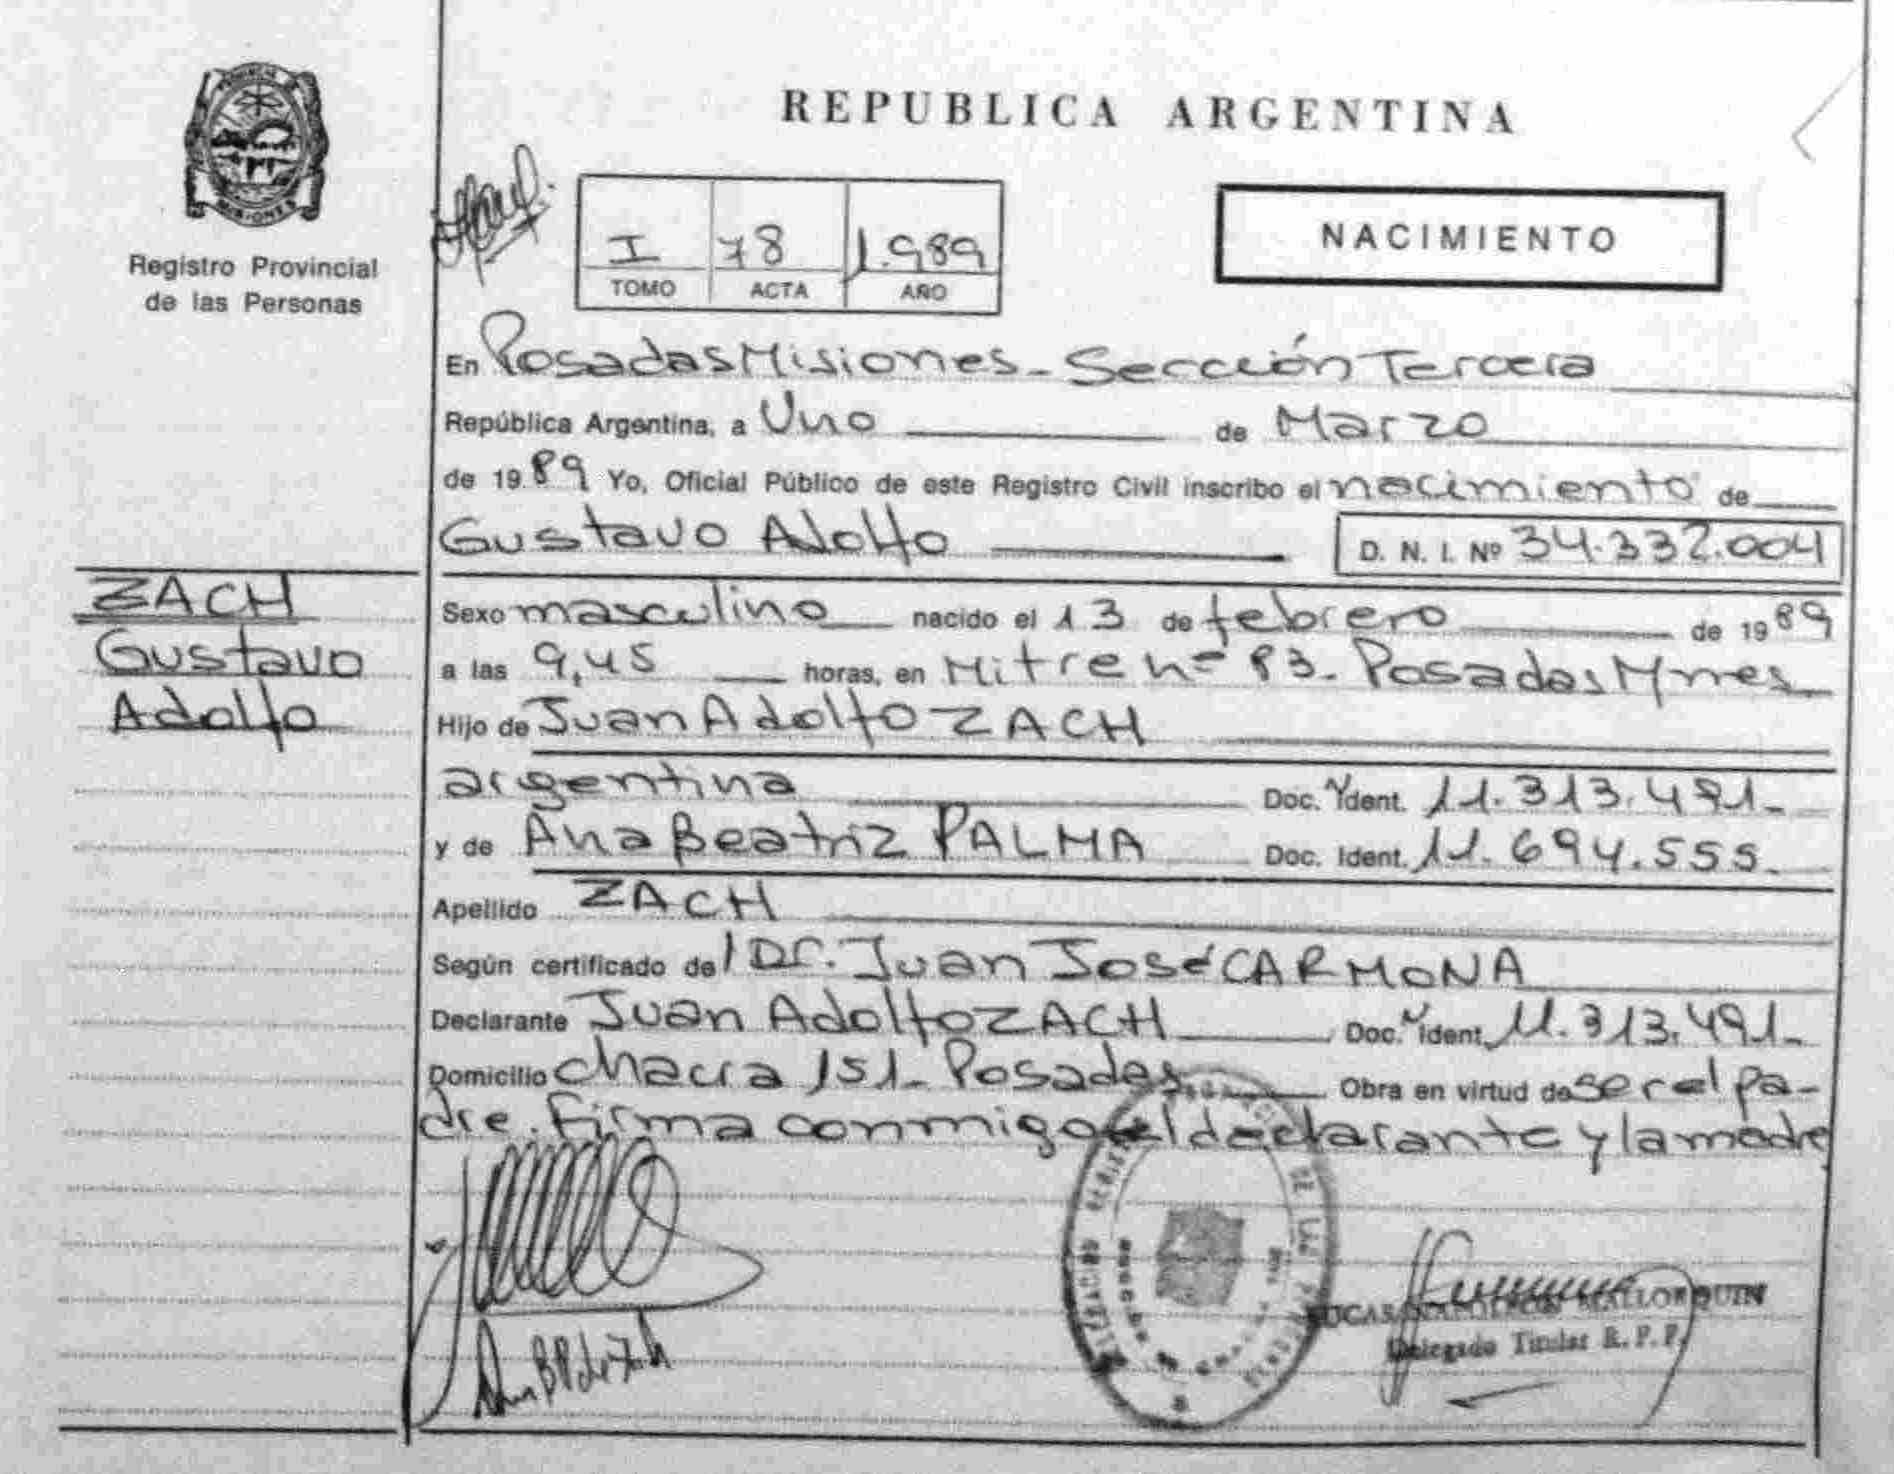 PROVINCIA DE
MISIONES
Registro Provincial
de las Personas
REPUBLICA ARGENTINA
I 78 1.989
TOMO ACTA AÑO
NACIMIENTO
En Posadas Misiones - Sección Tercera
República Argentina, a Uno de Marzo
de 1989 Yo, Oficial Público de este Registro Civil inscribo el nacimiento de
Gustavo Adolfo D. N. I. Nº 34.332.004
ZACH
Gustavo
Adolfo
Sexo masculino nacido el 13 de febrero de 1989
a las 9,45 horas, en Mitre nº 83. Posadas Mnes
Hijo de Juan Adolfo ZACH
argentina Doc. Ident. 11.313.491-
y de Ana Beatriz PALMA Doc. Ident. 11.694.555.
Apellido ZACH
Según certificado del Dr. Juan José CARMONA
Declarante Juan Adolfo ZACH Doc. Ident. 11.313.491-
Domicilio Chacra 151- Posadas Obra en virtud de ser el pa-
dre. Firma conmigo el declarante y la madre
MALLORQUIN
Delegado Titular R. P. P.